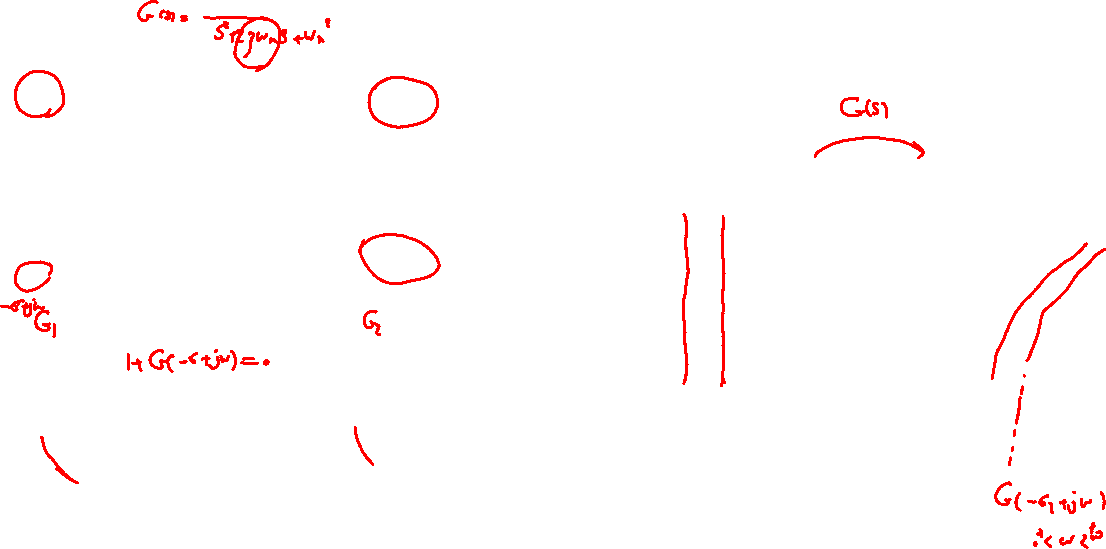 G(s) =
s² + 2ζωₙs + ωₙ²
G(s)
-σ+jω
G₁
G₂
1+G(-σ+jω)=0
G(-σ₁+jω)
0⁺<ω<+∞